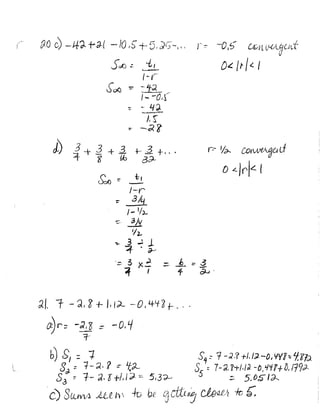 20 c) -42 + 21 - 10.5 + 5.25 - ... r = -0.5 convergent
S∞ = t₁ / 1-r 0<|r|<1
S∞ = -42 / 1--0.5
= -42 / 1.5
= -28
d) 3/4 + 3/8 + 3/16 + 3/32 + ... r = 1/2 convergent
0<|r|<1
S∞ = t₁ / 1-r
= 3/4 / 1-1/2
= 3/4 / 1/2
= 3/4 ÷ 1/2
= 3/4 × 2/1 = 6/4 = 3/2
21. 7 - 2.8 + 1.12 - 0.448 + ...
a) r = -2.8 / 7 = -0.4
b) S₁ = 7
S₂ = 7 - 2.8 = 4.2
S₃ = 7 - 2.8 + 1.12 = 5.32
S₄ = 7 - 2.8 + 1.12 - 0.448 = 4.872
S₅ = 7 - 2.8 + 1.12 - 0.448 + 0.1792
= 5.0512
c) Sums seem to be getting closer to 5.